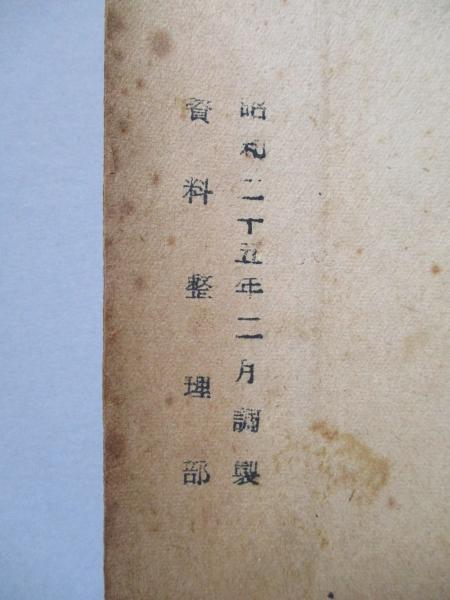 昭和二十五年二月調製
資料整理部